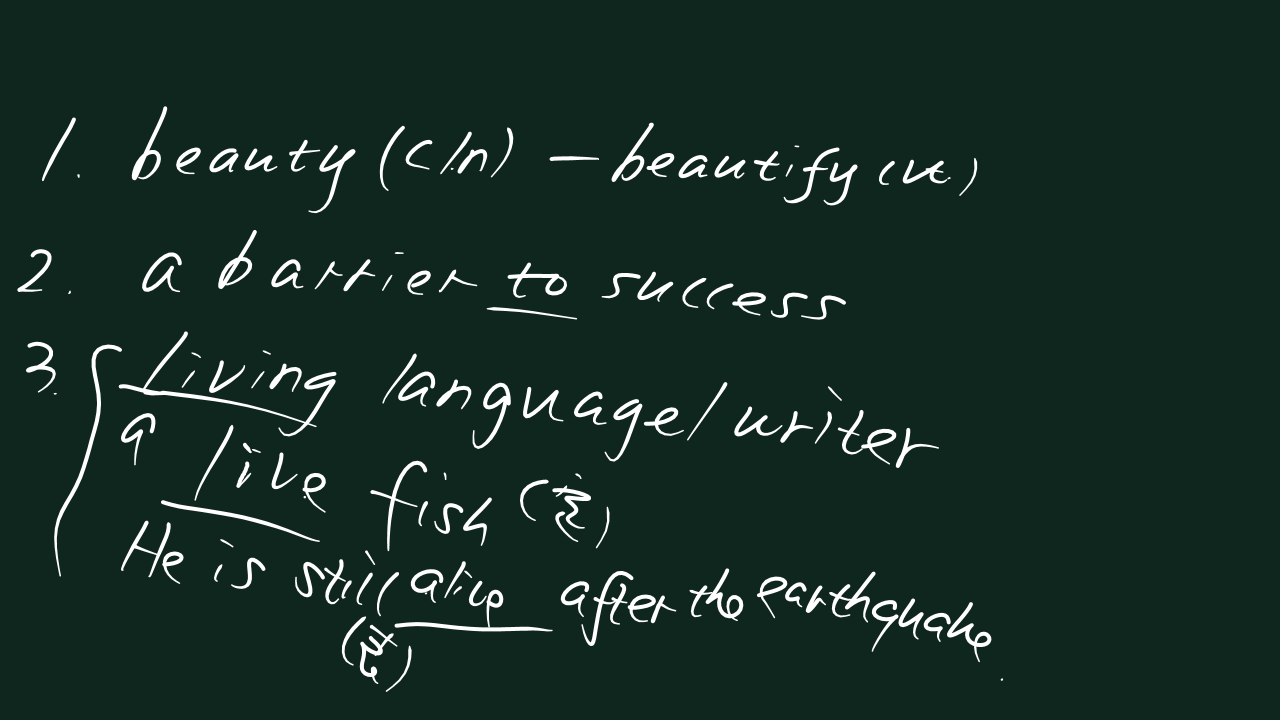 1. beauty (c/n) — beautify (vt.)
2. a barrier to success
3. living language/writer
a live fish ()
He is still alive after the earthquake.